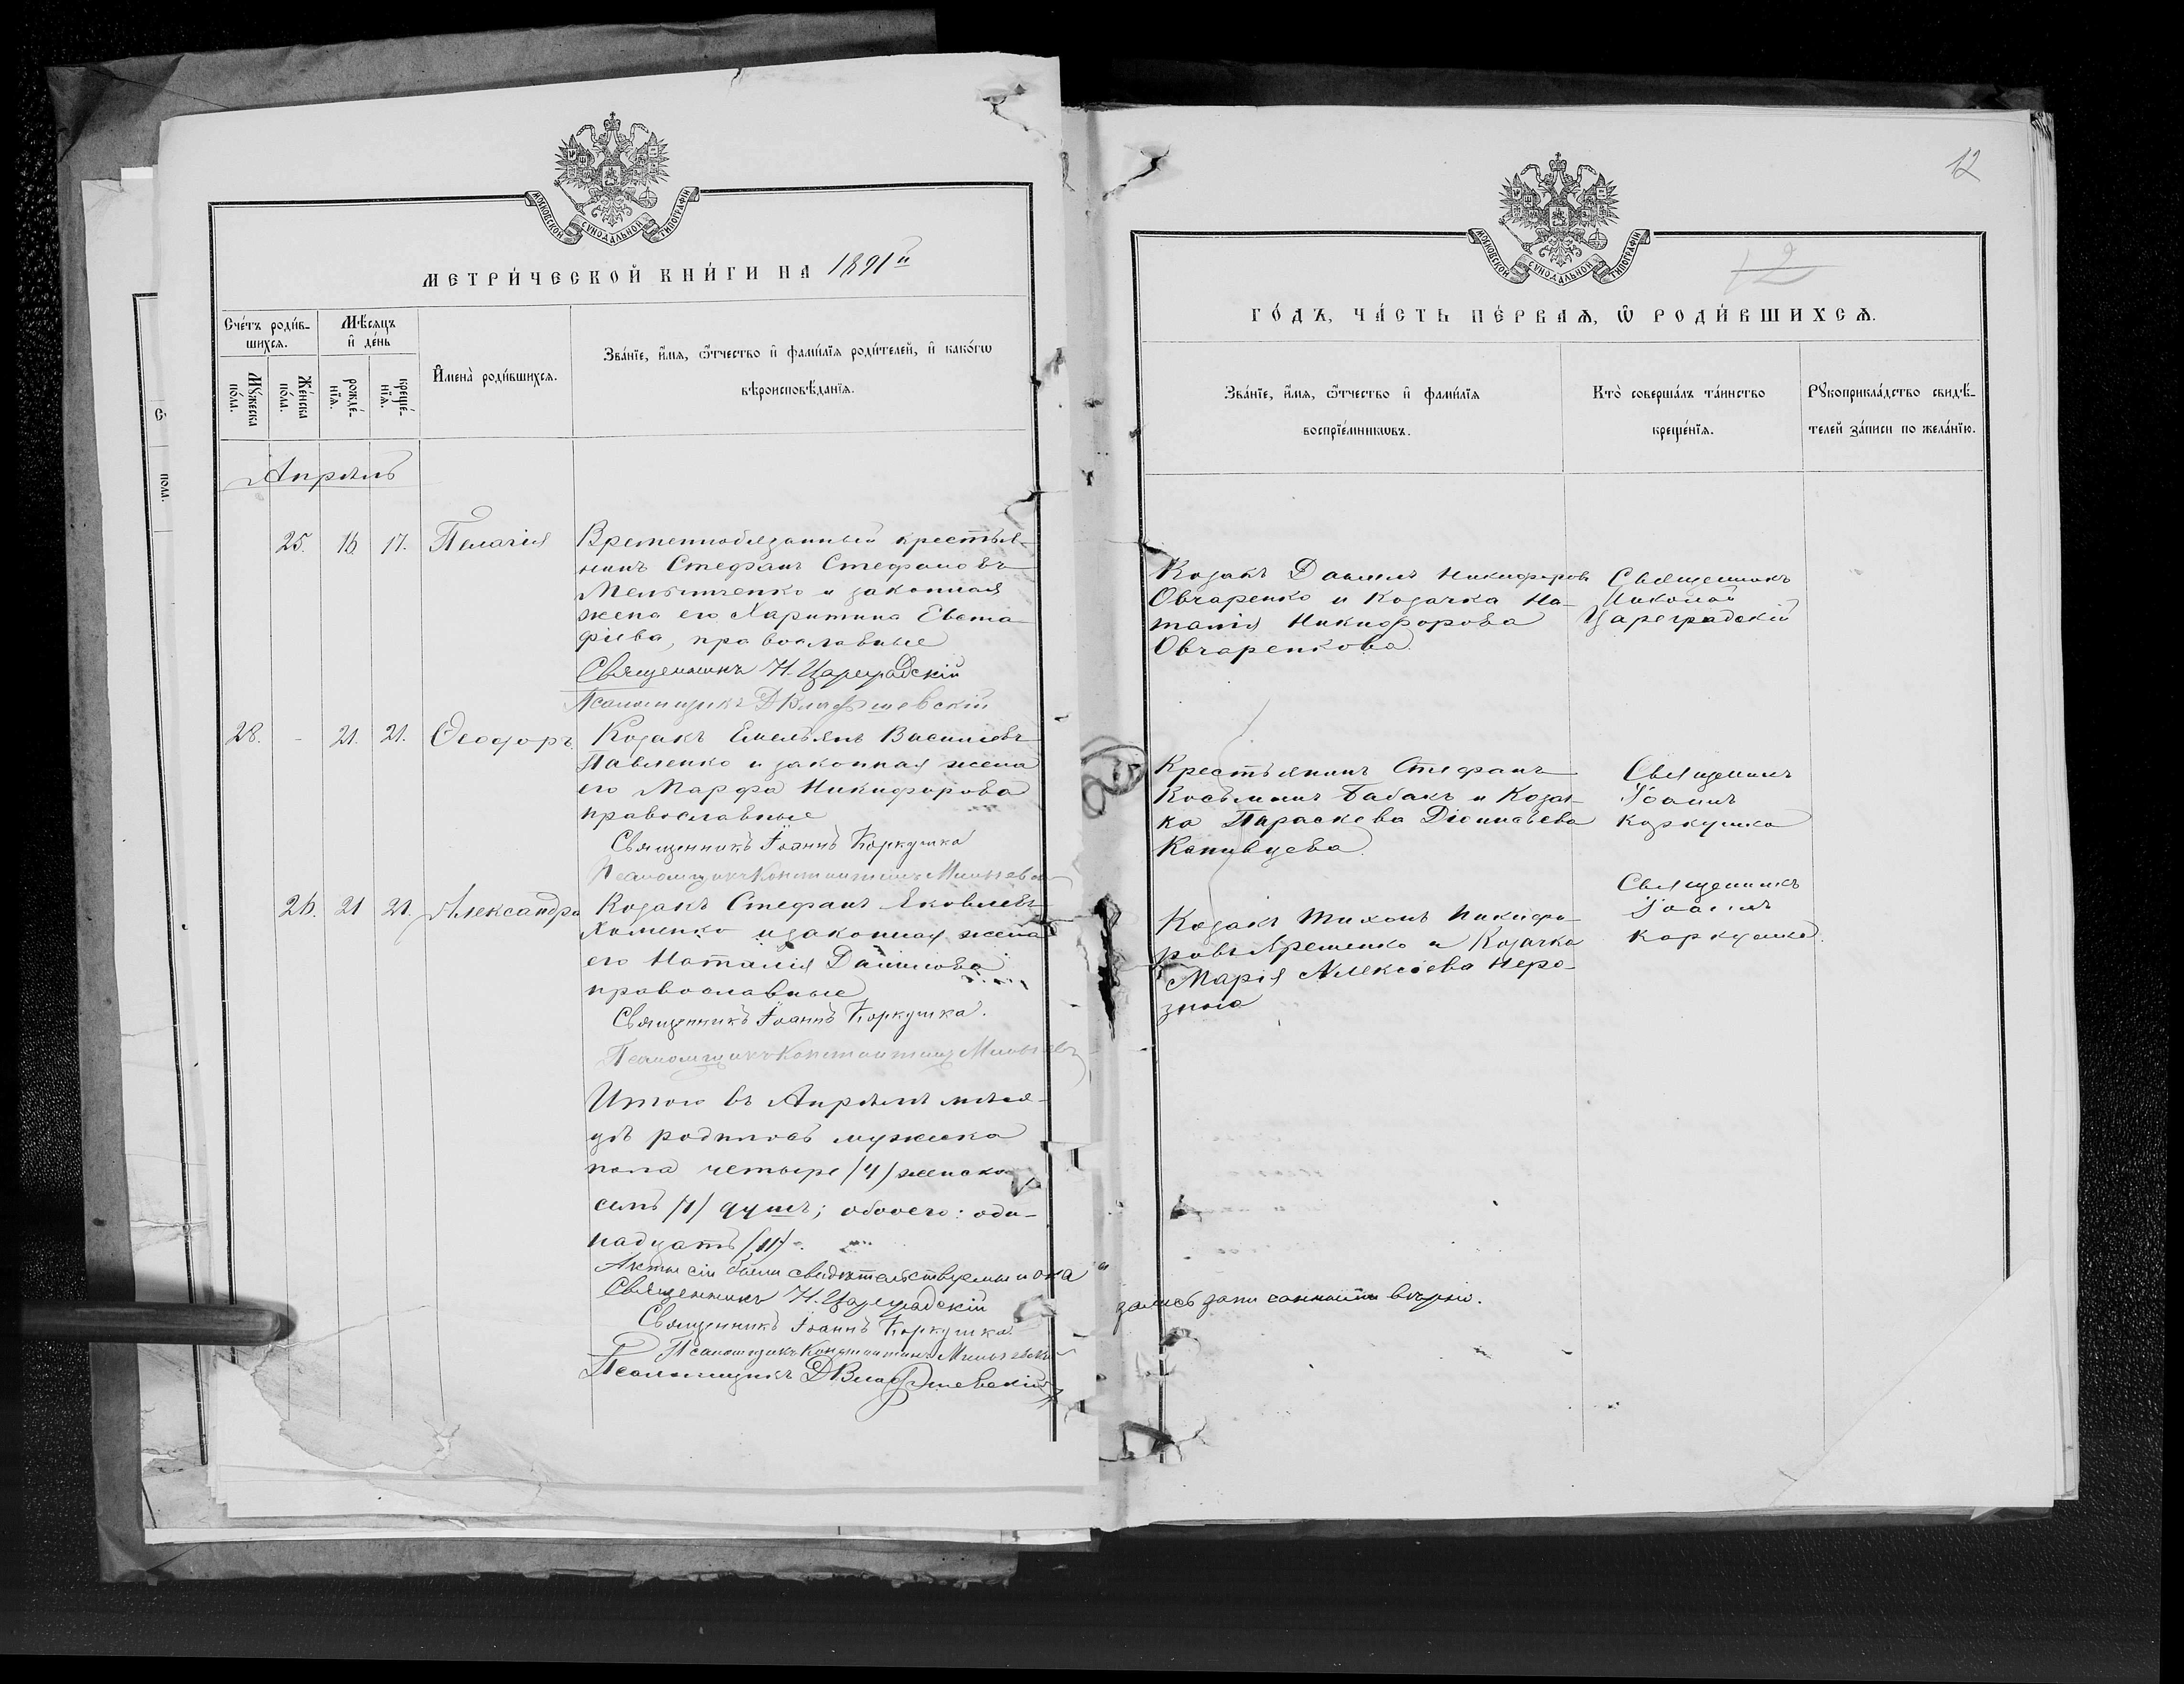 МОСКОВСКОЙ СѴНОДАЛЬНОЙ ТИПОГРАФІИ
МЕТРИ́ЧЕСКОЙ КНИ́ГИ НА 1891й
Сче́тъ роди́в-
шихсѧ.
Мѣ́сяцъ
и҆ де́нь
Мꙋ́жеска
по́ла.
Же́нска
по́ла.
рожде́-
нїѧ.
креще́-
нїѧ.
И҆мена̀ роди́вшихсѧ.
Зва́нїе, и҆́мѧ, ѻ҆́тчество и҆ фамі́лїѧ роди́телей, и҆ како́гѡ
вѣроисповѣ́данїѧ.
Апрѣль
25. 16. 17. Пелагія
Временнобязанный крестья-
нинъ Стефанъ Стефановъ
Мельниченко и законная
жена его Харитина Евста-
фіева, православные
Священникъ Н. Цареградскій
Псаломщикъ Д
28. - 21. 21. Ѳеодоръ
Козакъ Емельянъ Василіевъ
Павленко и законная жена
его Марфа Никифорова
православные
Священникъ Іоаннъ Коркушка
Псаломщикъ Константинъ
26. 21 21. Александра
Козакъ Стефанъ Яковлевъ
Хоменко и законная жена
его Наталія Данилова
православные
Священникъ Іоаннъ Коркушка.
Псаломщикъ Константинъ
Итого въ Апрѣлѣ мѣся-
цѣ родилось мужеска
пола четыре /4/ женска
семь /7/ душъ; обоего: оди-
надцать /11/.
Акты сіи были свидѣтельствуемы и ока
Священникъ Н. Цареградскій
Священникъ Іоаннъ Коркушка
Псаломщикъ Константинъ
Псаломщикъ Д
12
МОСКОВСКОЙ СѴНОДАЛЬНОЙ ТИПОГРАФІИ
ГО́ДЪ, ЧА́СТЬ ПЕ́РВАѦ, Ѡ҆ РОДИ́ВШИХСѦ.
Зва́нїе, и҆́мѧ, ѻ҆́тчество и҆ фамі́лїѧ
воспрїе́мникѡвъ.
Кто̀ соверша́лъ та́инство
креще́нїѧ.
Рꙋкоприкла́дство свидѣ́-
телей за́писи по жела́нїю.
Козакъ Даніилъ Никифоровъ
Овчаренко и Козачка На-
талія Никифорова
Овчаренкова.
Священникъ
Николай
Цареградскій
Крестьянинъ Стефанъ
Косьминъ Бабакъ и Козач-
ка Параскева Діонисіева
Копивцева.
Священникъ
Іоаннъ
Коркушка
Козакъ Тихонъ Никифо-
ровъ Яременко и Козачка
Марія Алексіева Неро-
зная
Священникъ
Іоаннъ
Коркушка.
зались записанными вѣрно.